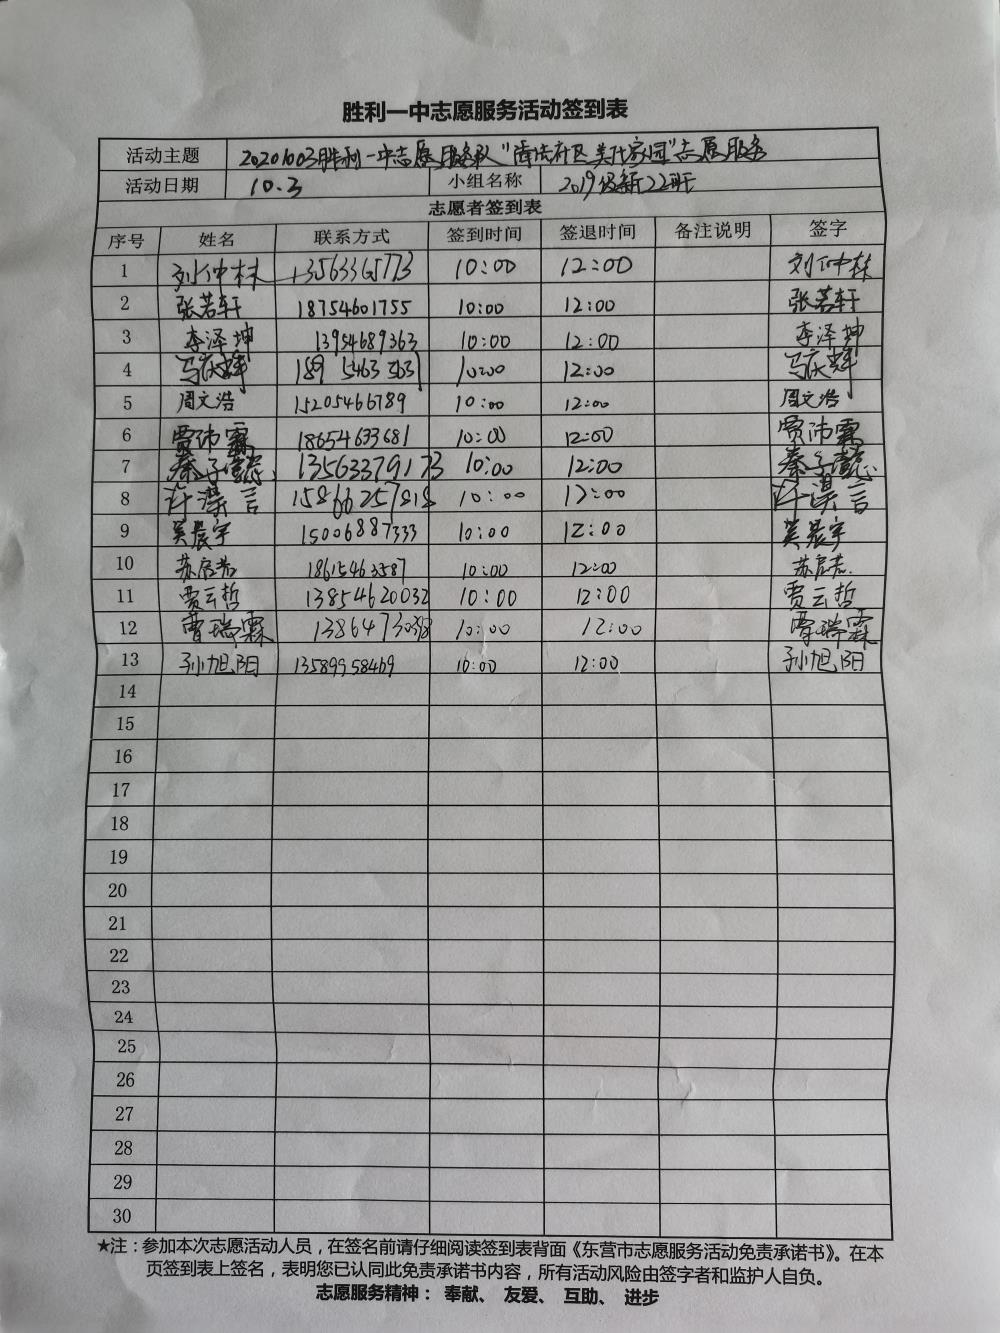 胜利一中志愿服务活动签到表
活动主题 20201003胜利一中志愿服务队"清洁社区 美化家园"志愿服务
活动日期 10.3 小组名称 2019级新22班
志愿者签到表
序号 姓名 联系方式 签到时间 签退时间 备注说明 签字
1 刘仲林 13563365773 10:00 12:00 刘仲林
2 张若轩 18754601755 10:00 12:00 张若轩
3 李泽坤 13954689363 10:00 12:00 李泽坤
4 马庆辉 189 5463 3631 10:00 12:00 马庆辉
5 周文浩 15205466789 10:00 12:00 周文浩
6 贾沛霖 18654633681 10:00 12:00 贾沛霖
7 秦子懿 13563379173 10:00 12:00 秦子懿
8 许淏言 15866257818 10:00 12:00 许淏言
9 吴晨宇 15006887333 10:00 12:00 吴晨宇
10 苏启 18615463587 10:00 12:00 苏启
11 贾云哲 13854620032 10:00 12:00 贾云哲
12 曹瑞霖 10:00 12:00 曹瑞霖
13 孙旭阳 13589958469 10:00 12:00 孙旭阳
14
15
16
17
18
19
20
21
22
23
24
25
26
27
28
29
30
★注：参加本次志愿活动人员，在签名前请仔细阅读签到表背面《东营市志愿服务活动免责承诺书》。在本
页签到表上签名，表明您已认同此免责承诺书内容，所有活动风险由签字者和监护人自负。
志愿服务精神： 奉献、 友爱、 互助、 进步